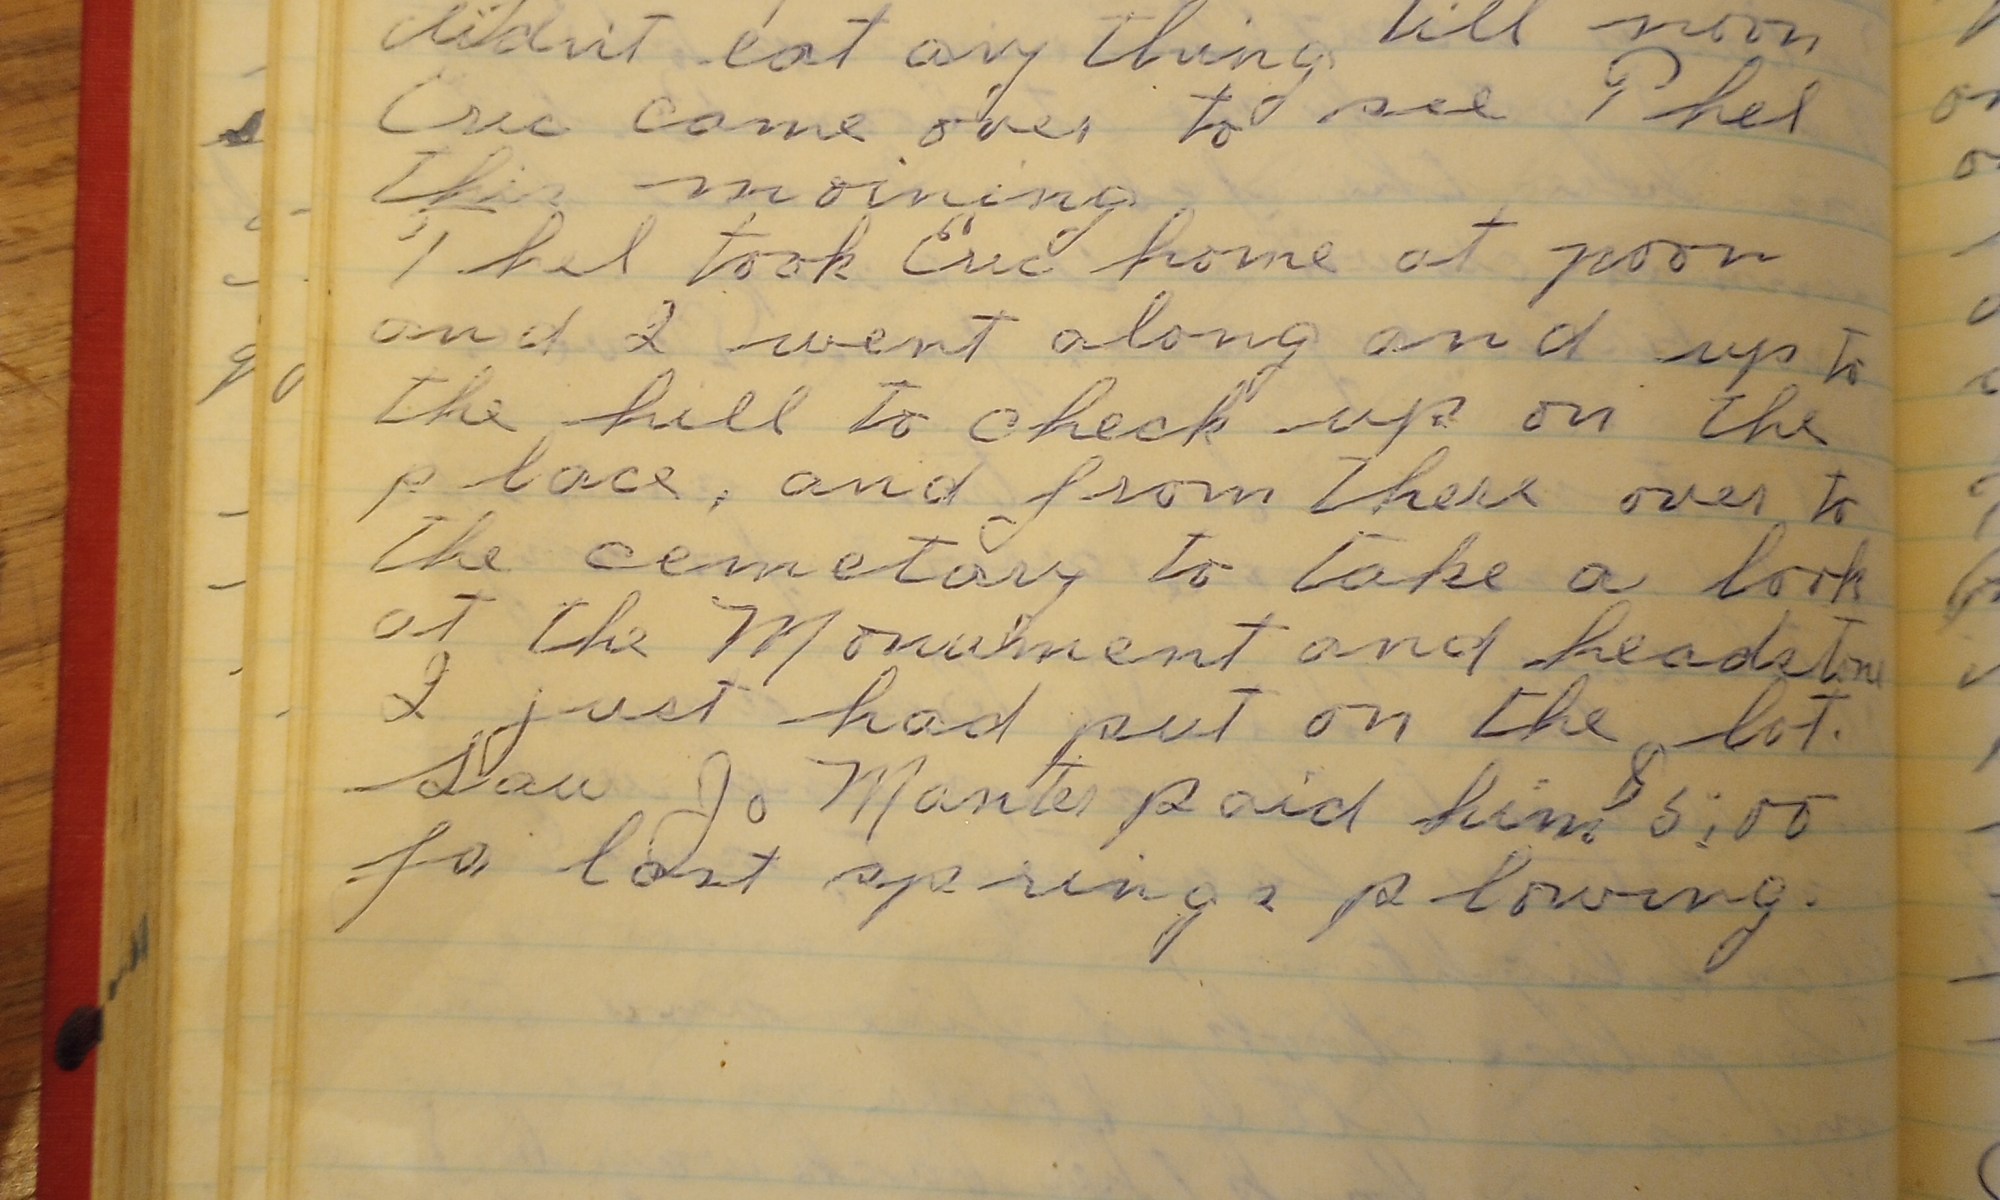 didn't eat any thing till noon
Eric came over to see Phel
this morning
Phel took Eric home at noon
and I went along and up to
the hill to check up on the
place, and from there over to
the cemetary to take a look
at the Monument and headstone
I just had put on the lot.
Saw Jo Manter paid him $5:00
for last springs plowing.